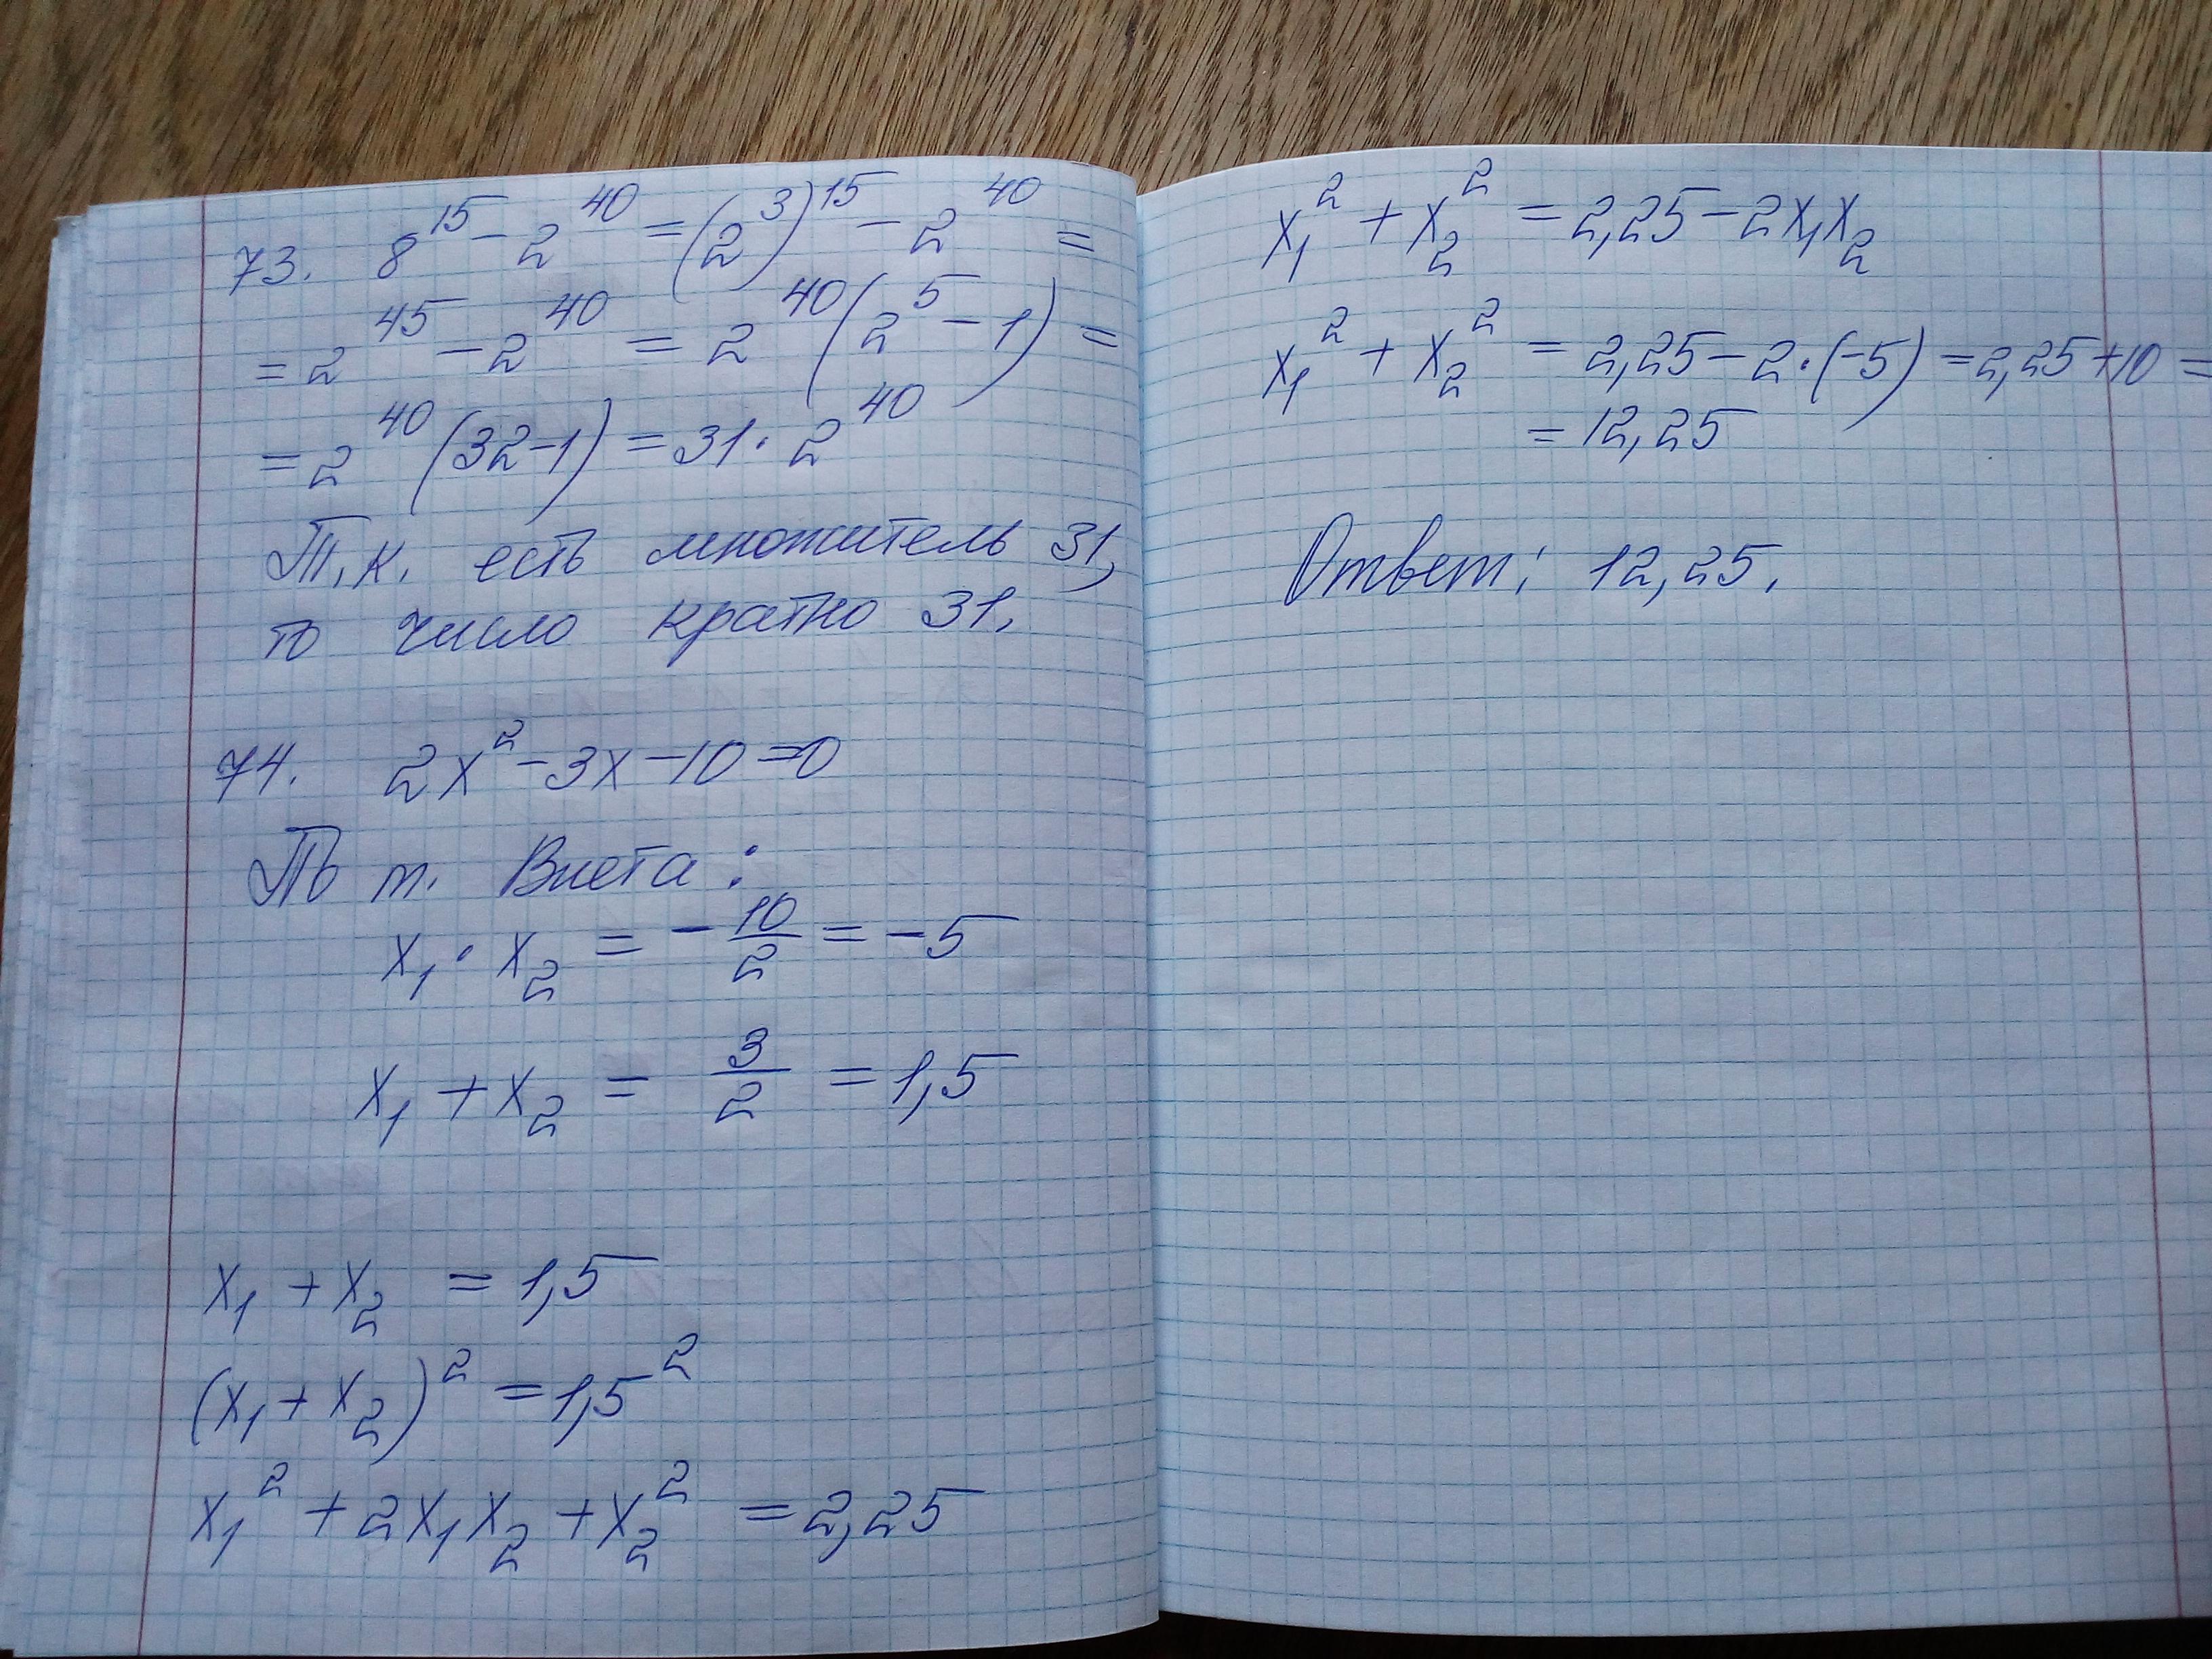 73. 8^15 - 2^40 = (2^3)^15 - 2^40 =
= 2^45 - 2^40 = 2^40 (2^5 - 1) =
= 2^40 (32-1) = 31 · 2^40
Т.к. есть множитель 31,
то число кратно 31.
74. 2x² - 3x - 10 = 0
По т. Виета:
x₁ · x₂ = - 10/2 = -5
x₁ + x₂ = 3/2 = 1,5
x₁ + x₂ = 1,5
(x₁ + x₂)² = 1,5²
x₁² + 2x₁x₂ + x₂² = 2,25
x₁² + x₂² = 2,25 - 2x₁x₂
x₁² + x₂² = 2,25 - 2·(-5) = 2,25 + 10 =
= 12,25
Ответ: 12,25.